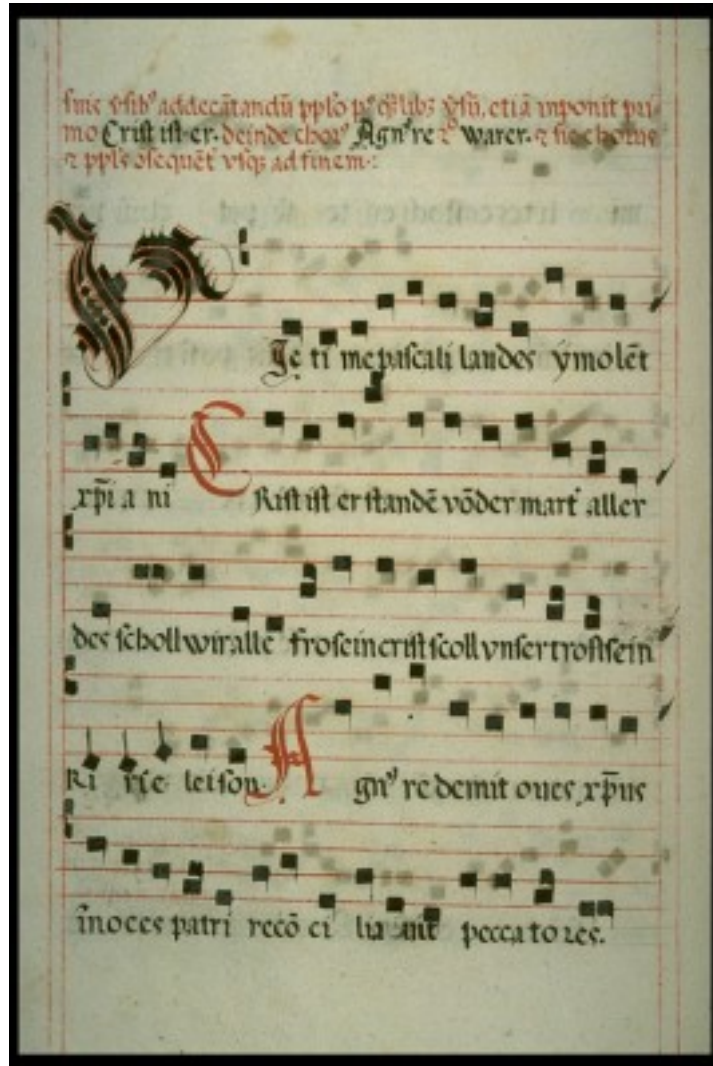 suis v̄sib⁹ ad decātandū pplo p⁹ q̄libꝫ v̄sū. etiā inponit pri
mo Crist ist er. deinde chor⁹ Agn⁹ re 2⁰ warer. ⁊ sic chorus
⁊ pp̄ls ↄsequēt vsqꝫ ad finem.
Victime pascali laudes ymolēt
xp̄iani CRist ist erstandē vōder mart aller
des scholl wir alle fro sein crist scoll vnser trost sein
kirieleison. Agn⁹ redemit oues xp̄us
īnoces patri recōciliauit peccatores.